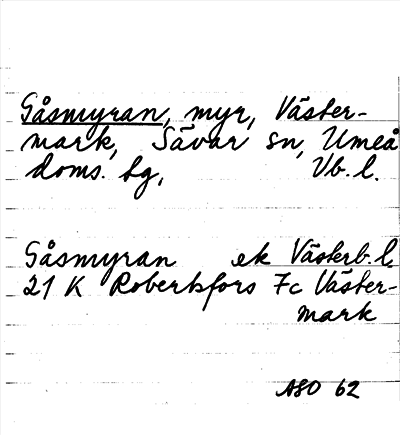 Gåsmyran, myr, Väster-
mark, Sävar sn, Umeå
doms. tg, Vb. l.
Gåsmyran ek Västerb. l.
21 K Robertsfors 7c Väster-
mark
ASO 62